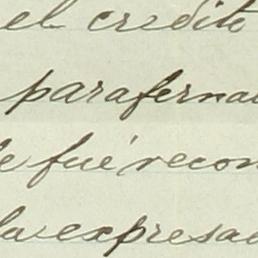 el credito
parafernal
e fué recon
la expresad